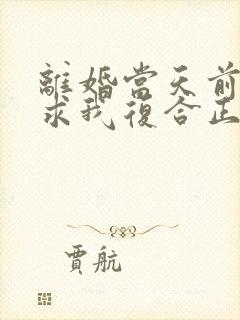 離婚當天前
求我復合正
賈航